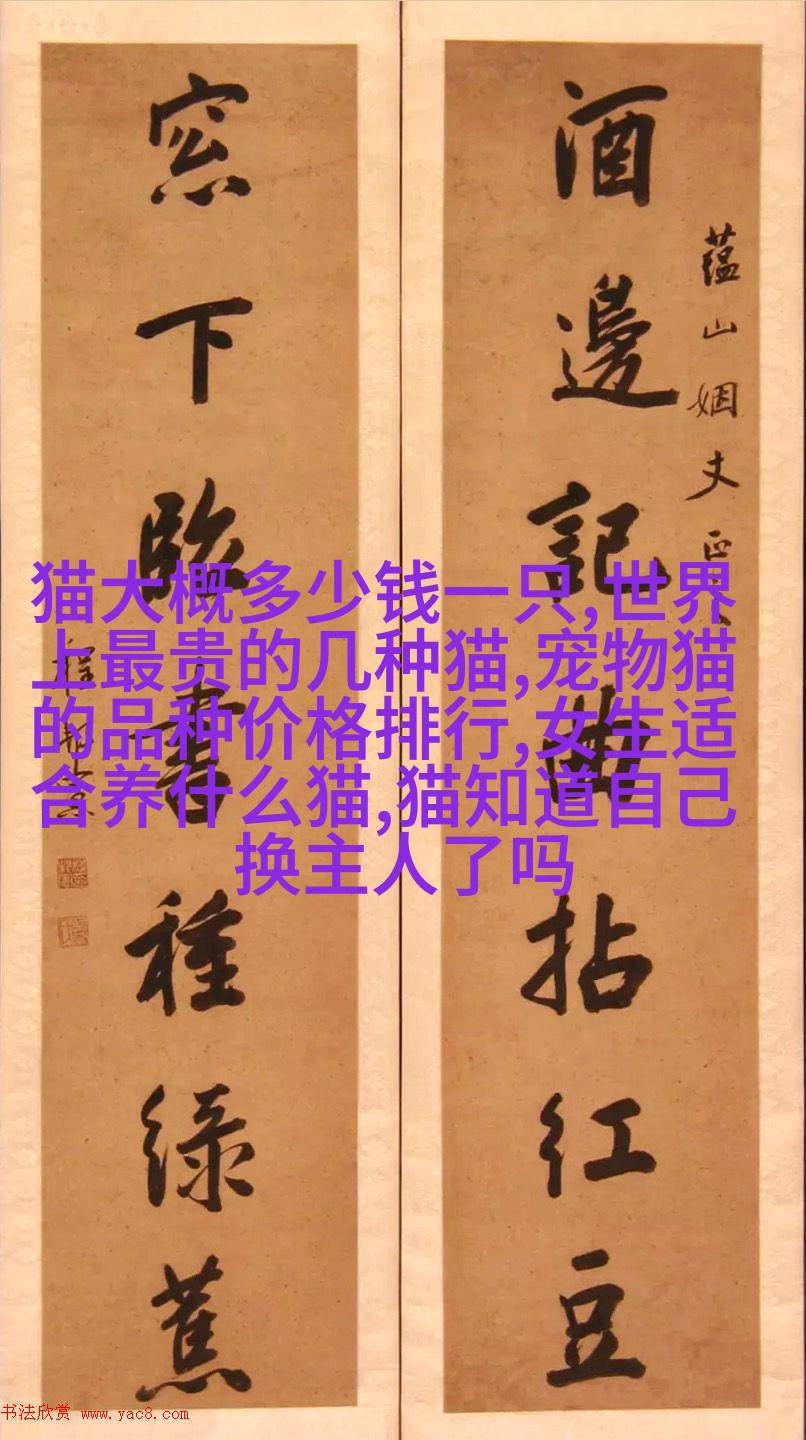 酒邊記曲拈紅豆
蕴山姻丈正
窓下臨書種綠蕉
猫大概多少钱一只,世界
上最贵的几种猫,宠物猫
的品种价格排行,女生适
合养什么猫,猫知道自己
换主人了吗
书法欣赏 www.yac8.com